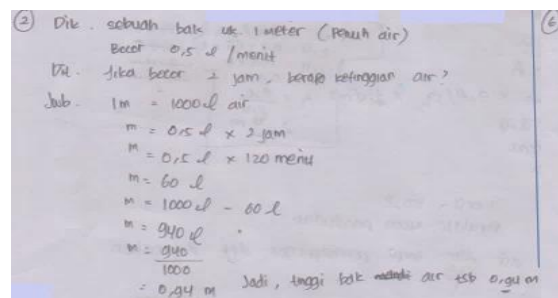 ② Dik. sebuah bak uk. 1 meter (Penuh air)
Bocor 0,5 l /menit
Dit. Jika bocor 2 jam, berapa ketinggian air?
Jwb. 1m = 1000 l air
m = 0,5 l x 2 jam
m = 0,5 l x 120 menit
m = 60 l
m = 1000 l - 60 l
m = 940 l
m = 940
1000
= 0,94 m Jadi, tinggi bak air tsb 0,94 m
⑥